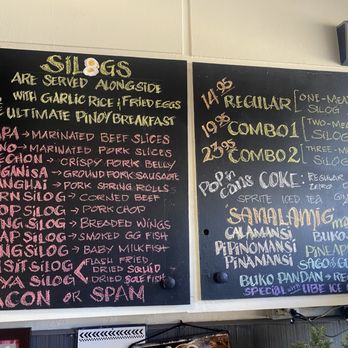 SILOGS
ARE SERVED ALONGSIDE
WITH GARLIC RICE & FRIED EGGS
ULTIMATE PINOY BREAKFAST
PA → MARINATED BEEF SLICES
NO → MARINATED PORK SLICES
ECHON → CRISPY PORK BELLY
GANISA → GROUND PORK SAUSAGE
ANGHAI → PORK SPRING ROLLS
RNSILOG → CORNED BEEF
OP SILOG → PORK CHOP
NG SILOG → BREADED WINGS
AP SILOG → SMOKED GG FISH
NGSILOG → BABY MILKFISH
SIT SILOG FLASH FRIED, DRIED SQUID
YA SILOG DRIED SOLE FISH
ACON OR SPAM
14.95 REGULAR [ONE-MEAT SILOG
19.95 COMBO 1 [TWO-MEAT SILOG
23.95 COMBO 2 [THREE-M SILOG
Pop in cans COKE: REGULAR ZERO
SPRITE ICED TEA
SAMALAMIG
CALAMANSI
PIPINOMANSI
PINAMANSI
BUKO
PINEAPPLE
SAGO & G
BUKO PANDAN → RE
SPECIAL WITH UBE ICE